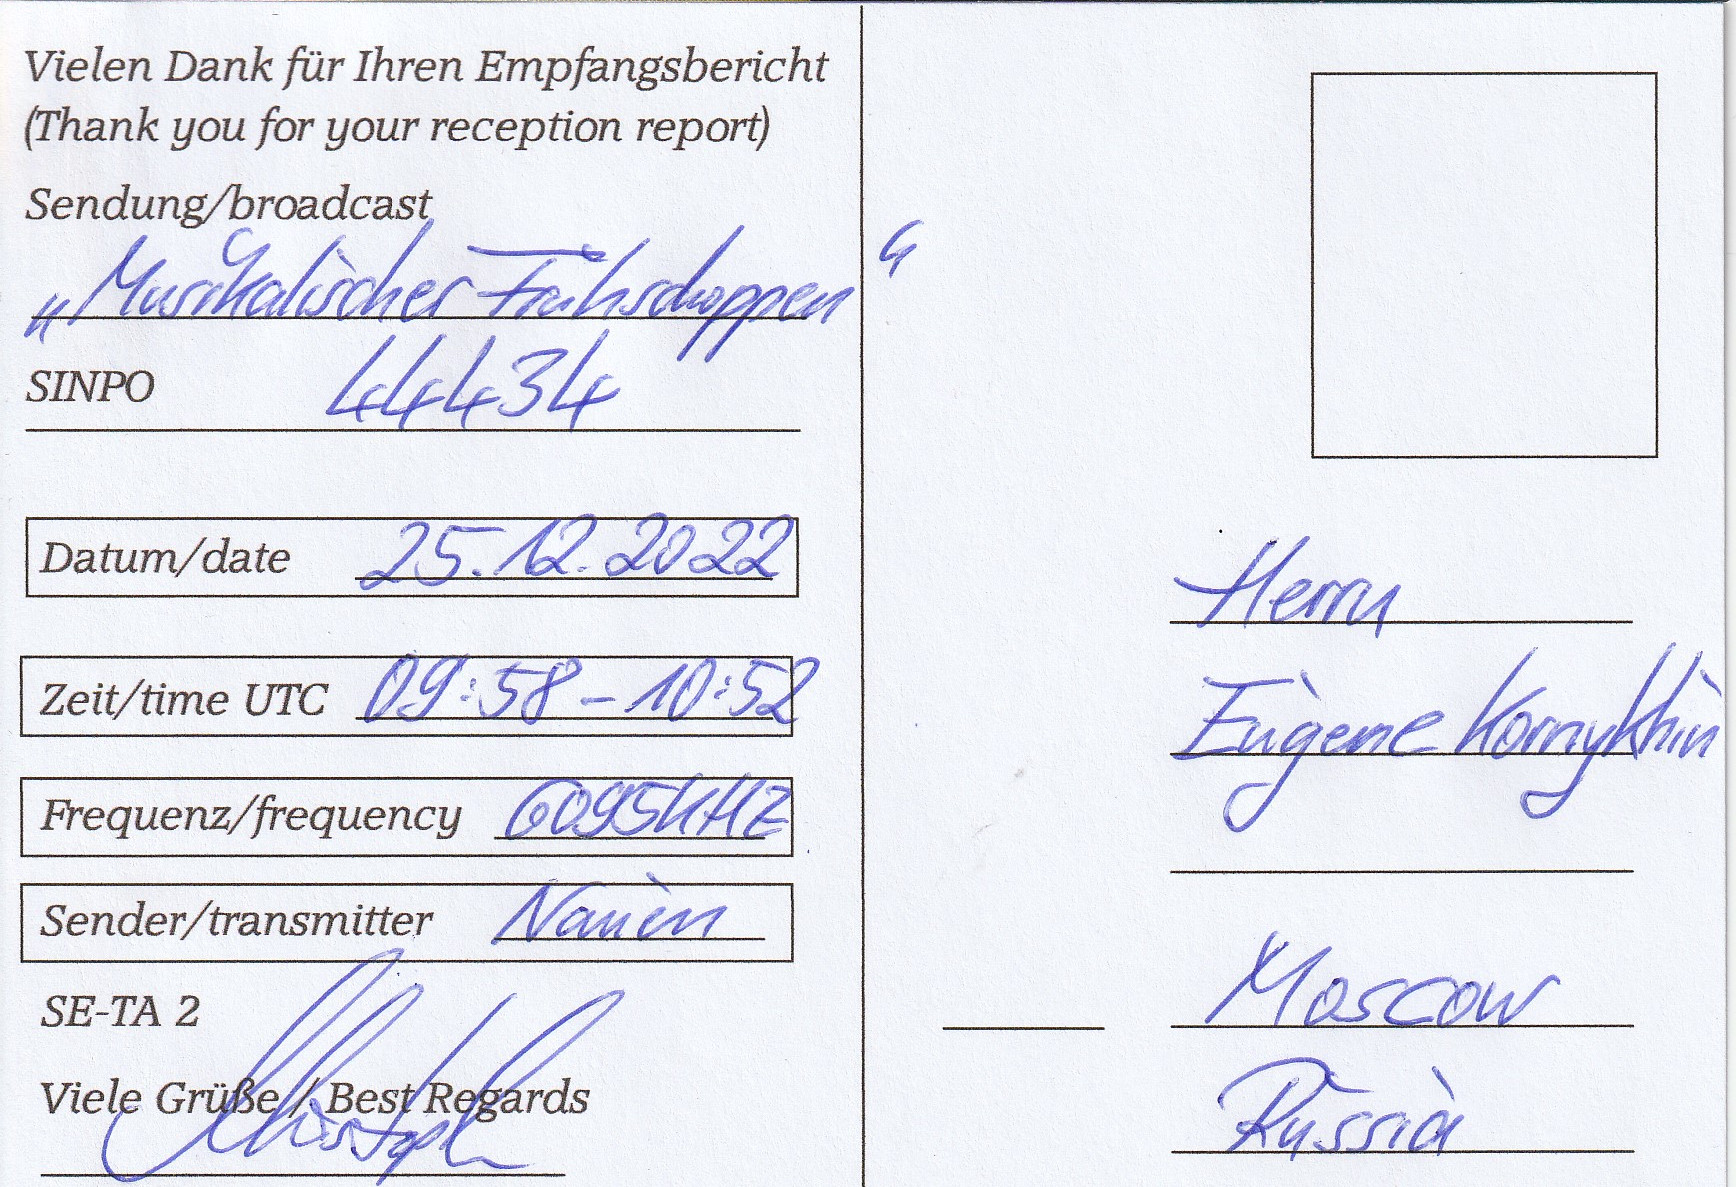 Vielen Dank für Ihren Empfangsbericht
(Thank you for your reception report)
Sendung/broadcast
„Musikalischer Frühschoppen“
SINPO 44434
Datum/date 25.12.2022
Zeit/time UTC 09:58-10:52
Frequenz/frequency 6095kHz
Sender/transmitter Nauen
SE-TA 2
Viele Grüße / Best Regards
Christoph
Herrn
Eugene Kornykhin
Moscow
Russia